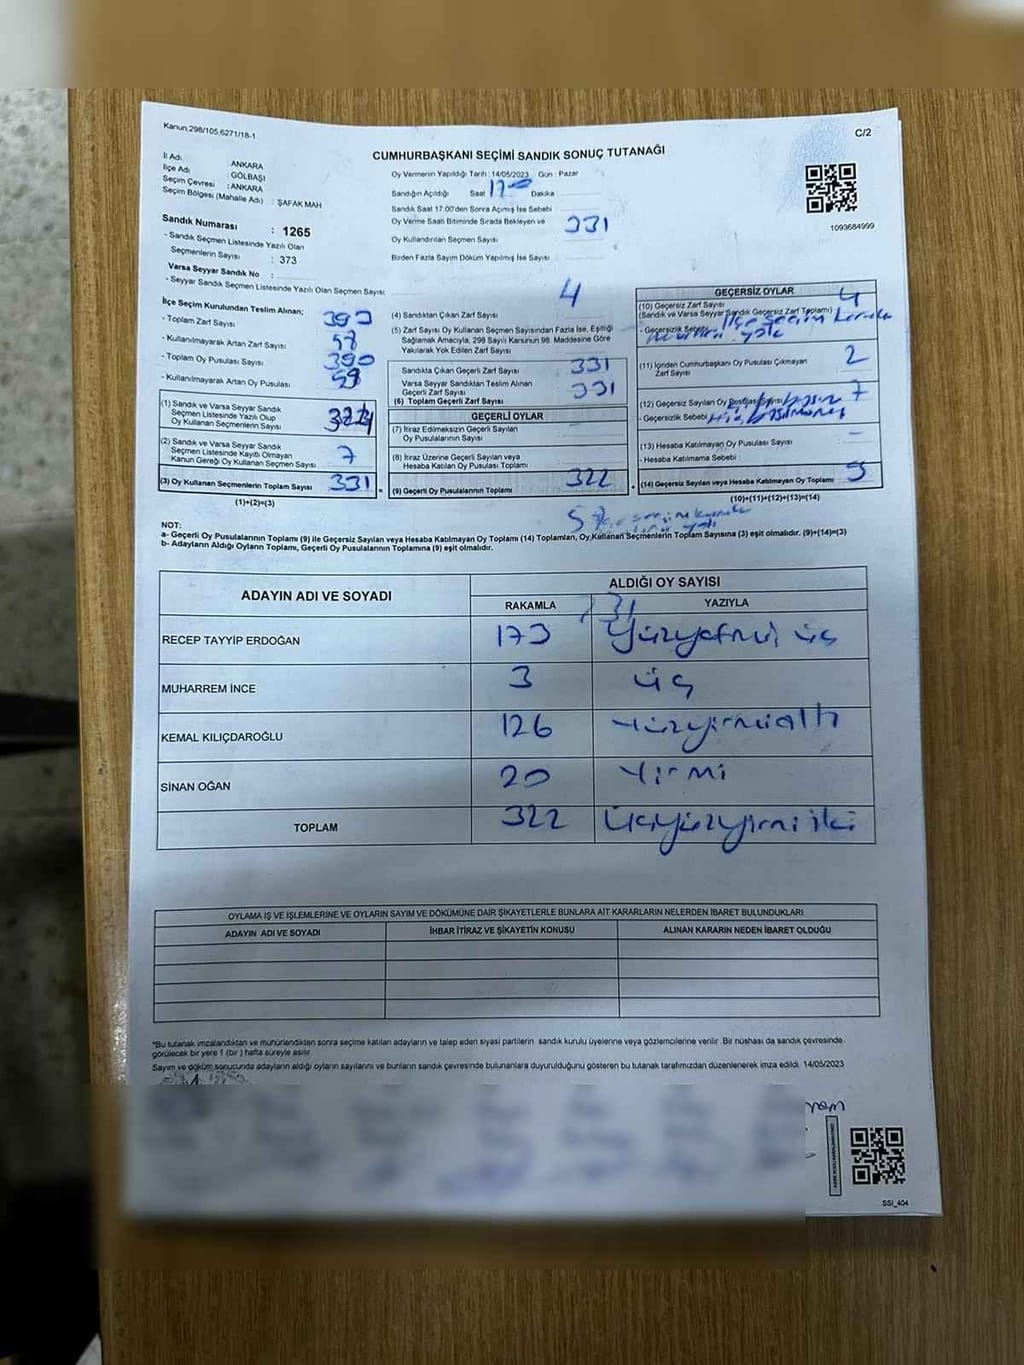 Kanun 298/105,6271/18-1
C/2
CUMHURBAŞKANI SEÇİMİ SANDIK SONUÇ TUTANAĞI
İl Adı : ANKARA
İlçe Adı : GÖLBAŞI
Seçim Çevresi : ANKARA
Seçim Bölgesi (Mahalle Adı) : ŞAFAK MAH
Sandık Numarası : 1265
- Sandık Seçmen Listesinde Yazılı Olan
Seçmenlerin Sayısı : 373
Varsa Seyyar Sandık No :
- Seyyar Sandık Seçmen Listesinde Yazılı Olan Seçmen Sayısı
Oy Vermenin Yapıldığı Tarih : 14/05/2023 Gün : Pazar
Sandığın Açıldığı Saat 17-00 Dakika
Sandık Saat 17.00'den Sonra Açılmış İse Sebebi
Oy Verme Saati Bitiminde Sırada Bekleyen ve
Oy Kullandırılan Seçmen Sayısı 331
Birden Fazla Sayım Döküm Yapılmış İse Sayısı
1093684999
İlçe Seçim Kurulundan Teslim Alınan;
- Toplam Zarf Sayısı 390
- Kullanılmayarak Artan Zarf Sayısı
- Toplam Oy Pusulası Sayısı 390
- Kullanılmayarak Artan Oy Pusulası 59
(1) Sandık ve Varsa Seyyar Sandık
Seçmen Listesinde Yazılı Olup
Oy Kullanan Seçmenlerin Sayısı
(2) Sandık ve Varsa Seyyar Sandık
Seçmen Listesinde Kayıtlı Olmayan
Kanun Gereği Oy Kullanan Seçmen Sayısı 7
(3) Oy Kullanan Seçmenlerin Toplam Sayısı 331
(1)+(2)=(3)
4
(4) Sandıktan Çıkan Zarf Sayısı
(5) Zarf Sayısı Oy Kullanan Seçmen Sayısından Fazla İse, Eşitliği
Sağlamak Amacıyla, 298 Sayılı Kanunun 98. Maddesine Göre
Yakılarak Yok Edilen Zarf Sayısı
Sandıkta Çıkan Geçerli Zarf Sayısı 331
Varsa Seyyar Sandıktan Teslim Alınan
Geçerli Zarf Sayısı
(6) Toplam Geçerli Zarf Sayısı 331
GEÇERLİ OYLAR
(7) İtiraz Edilmeksizin Geçerli Sayılan
Oy Pusulalarının Sayısı
(8) İtiraz Üzerine Geçerli Sayılan veya
Hesaba Katılan Oy Pusulası Toplamı
(9) Geçerli Oy Pusulalarının Toplamı 322
GEÇERSİZ OYLAR
(10) Geçersiz Zarf Sayısı 4
(Sandık ve Varsa Seyyar Sandık Geçersiz Zarf Toplamı)
- Geçersizlik Sebebi İlçe seçim kurulu
mührü yok
(11) İçinden Cumhurbaşkanı Oy Pusulası Çıkmayan
Zarf Sayısı 2
(12) Geçersiz Sayılan Oy Pusulası Sayısı 7
- Geçersizlik Sebebi
(13) Hesaba Katılmayan Oy Pusulası Sayısı -
- Hesaba Katılmama Sebebi :
(14) Geçersiz Sayılan veya Hesaba Katılmayan Oy Toplamı 9
(10)+(11)+(12)+(13)=(14)
NOT:
a- Geçerli Oy Pusulalarının Toplamı (9) ile Geçersiz Sayılan veya Hesaba Katılmayan Oy Toplamı (14) Toplamları, Oy Kullanan Seçmenlerin Toplam Sayısına (3) eşit olmalıdır. (9)+(14)=(3)
b- Adayların Aldığı Oyların Toplamı, Geçerli Oy Pusulalarının Toplamına (9) eşit olmalıdır.
ADAYIN ADI VE SOYADI
ALDIĞI OY SAYISI
RAKAMLA YAZIYLA
RECEP TAYYİP ERDOĞAN 173 Yüzyetmiş üç
MUHARREM İNCE 3 üç
KEMAL KILIÇDAROĞLU 126 Yüzyirmialtı
SİNAN OĞAN 20 Yirmi
TOPLAM 322 Üçyüzyirmi iki
OYLAMA İŞ VE İŞLEMLERİNE VE OYLARIN SAYIM VE DÖKÜMÜNE DAİR ŞİKAYETLERLE BUNLARA AİT KARARLARIN NELERDEN İBARET BULUNDUKLARI
ADAYIN ADI VE SOYADI İHBAR İTİRAZ VE ŞİKAYETİN KONUSU ALINAN KARARIN NEDEN İBARET OLDUĞU
*Bu tutanak imzalandıktan ve mühürlendikten sonra seçime katılan adayların ve talep eden siyasi partilerin sandık kurulu üyelerine veya gözlemcilerine verilir. Bir nüshası da sandık çevresinde
görülecek bir yere 1 (bir) hafta süreyle asılır
Sayım ve döküm sonucunda adayların aldığı oyların sayılarını ve bunların sandık çevresinde bulunanlara duyurulduğunu gösteren bu tutanak tarafımızdan düzenlenerek imza edildi. 14/05/2023
SSİ_404